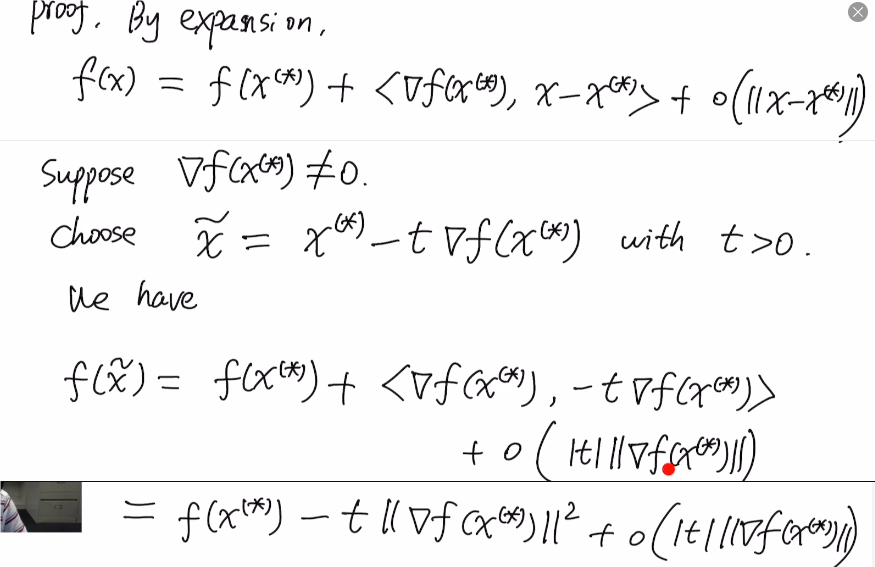 proof. By expansion,
f(x) = f(x^(*)) + <∇f(x^(*)), x-x^(*)> + o(||x-x^(*)||)
Suppose ∇f(x^(*)) ≠ 0.
choose x̃ = x^(*) - t ∇f(x^(*)) with t>0.
We have
f(x̃) = f(x^(*)) + <∇f(x^(*)), -t ∇f(x^(*))>
+ o(|t| ||∇f(x^(*))||)
= f(x^(*)) - t ||∇f(x^(*))||² + o(|t| ||∇f(x^(*))||)